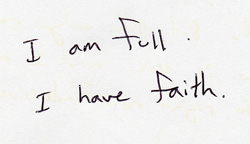 I am full.
I have faith.